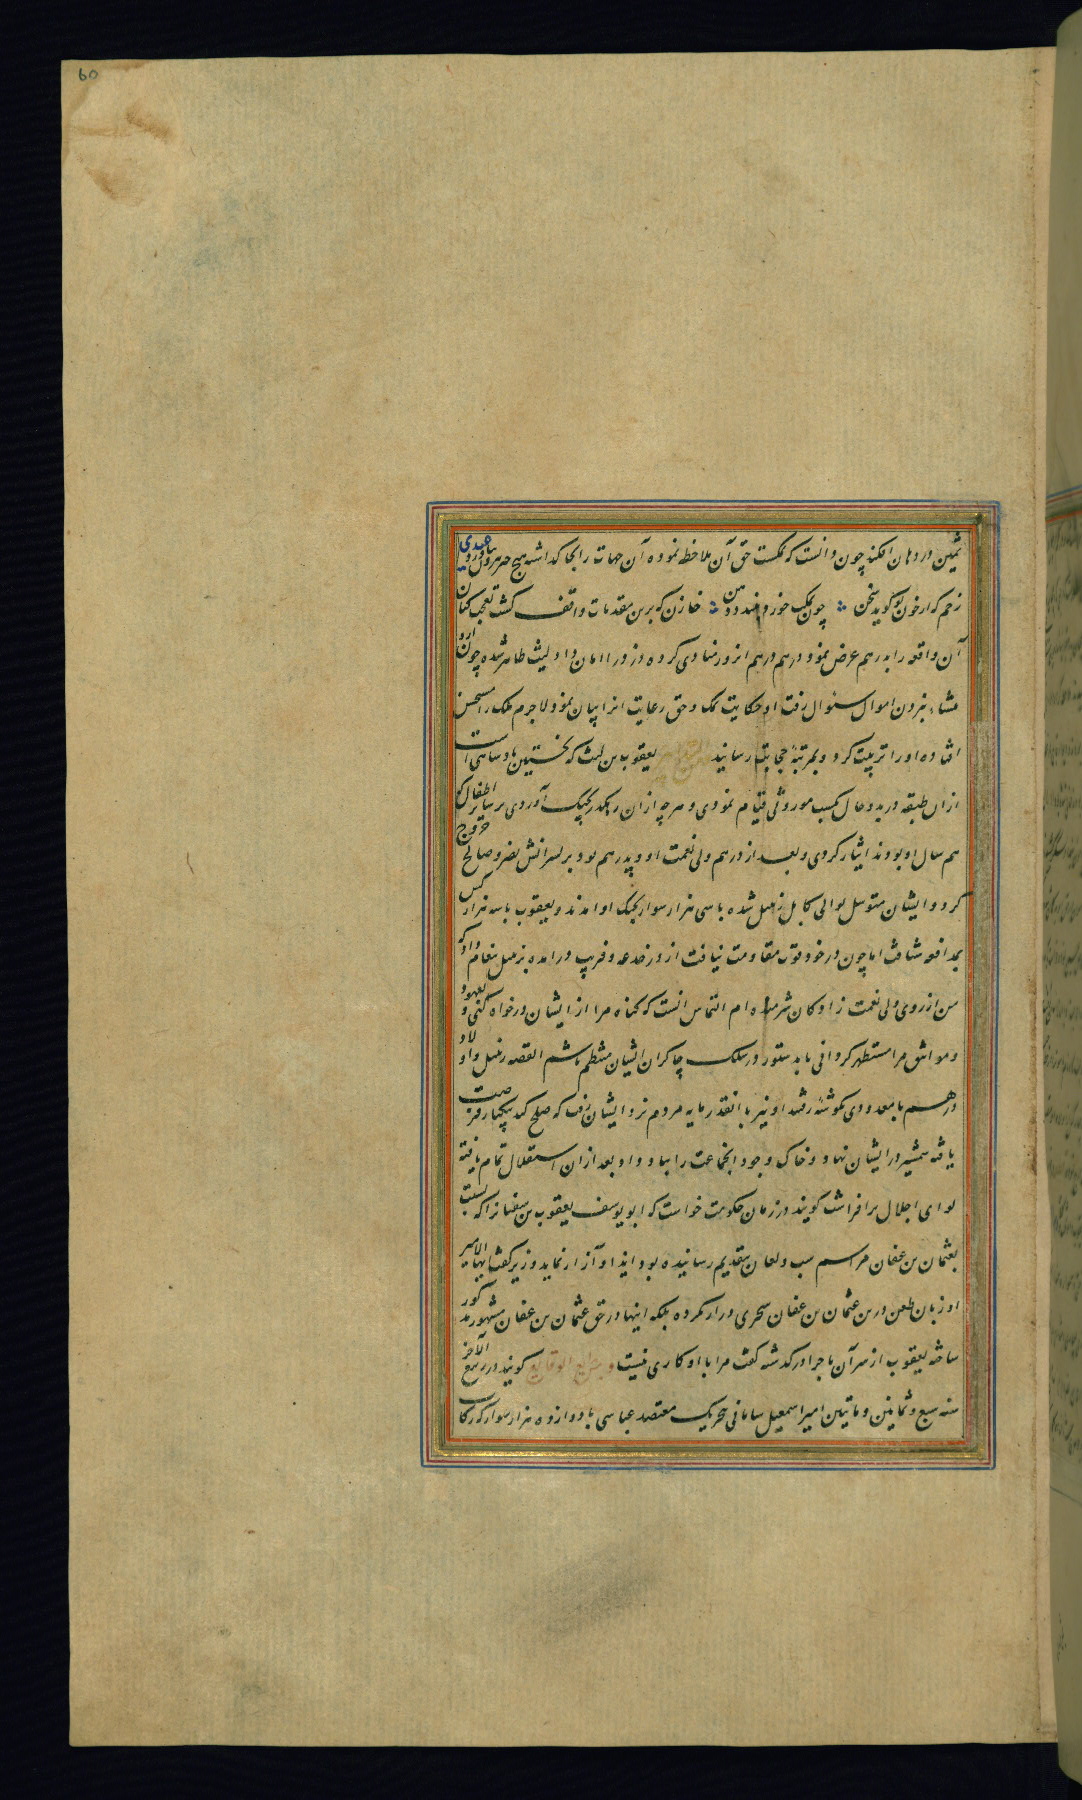 60
ثمین در دهان افکند چون دانست که نمکست حق آن ملاحظه نموده آن جهات را بجا گذاشته هیچ چیز بیرون
زخم که از خون گوید سخن چون نمک خورد خازن که برین مقدمات واقف گشت تعجب کنان
آن واقعه را بدرهم عرض نمود درهم در هم از زر منادی کرده دزد را امان داد لیث ظاهر شده چون ازو
منشاء نبردن اموال سئوال رفت او حکایت نمک و حق رعایت آنرا بیان نمود لاجرم ملک را مستحسن
افتاده او را تربیت کرد و بمرتبهٔ حجابت رسانید یعقوب بن لیث که نخستین پادشاهی است
ازان طبقه در بدو حال بکسب موروثی قیام نمودی و هرچه ازان رهگذر بچنگ آوردی بر سایر اطفال که
هم سال او بودند ایثار کردی و بعد از درهم ولی نعمت او و پدرهم بود بر پسرانش نضر و صالح خروج
کرد و ایشان متوسل بوالی کابل زنبیل شده با سی هزار سوار بجنگ او آمدند و یعقوب با سه هزار کس
بمدافعه شتافت اما چون در خود قوت مقاومت نیافت از در خدعه و فریب درآمده بزنبیل پیغام داد که
من از روی ولی نعمت زادکان شرمنده ام التماس آنست که گناه مرا از ایشان درخواه کنی و بعهود
و مواثیق مرا مستظهر گردانی تا بدستور در سلک چاکران ایشان منتظم باشم القصه زنبیل و اولاد
درهم با معدودی بگوشه رفتند او نیز با آنقدر مایه مردم نزد ایشان رفت که صلح کند بیکبار فرصت
یافته شمشیر در ایشان نهاد و خاک وجود آنجماعت را بباد داد و بعد ازان استقلال تمام یافته
لوای اجلال برافراشت گویند در زمان حکومت خواست که ابو یوسف یعقوب بن سفیانرا که نسبت
بعثمان بن عفان مراسم سب و لعان بتقدیم رسانیده بود ایذا و آزار نماید وزیر گفت ایها الامیر
او زبان طعن در بن عثمان بن عفان سجزی دراز نکرده بلکه اینها در حق عثمان بن عفان مشهور مذکور
ساخته یعقوب از سر آن ماجرا در گذشته گفت مرا با او کاری نیست بدایع الوقایع گویند در ربیع الآخر
سنه سبع و ثمانین و ماتین امیر اسمعیل سامانی بتحریک معتضد عباسی با دوازده هزار سوار که رکاب